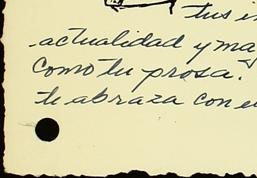 tus i
actualidad y ma
como tu prosa.
te abraza con e